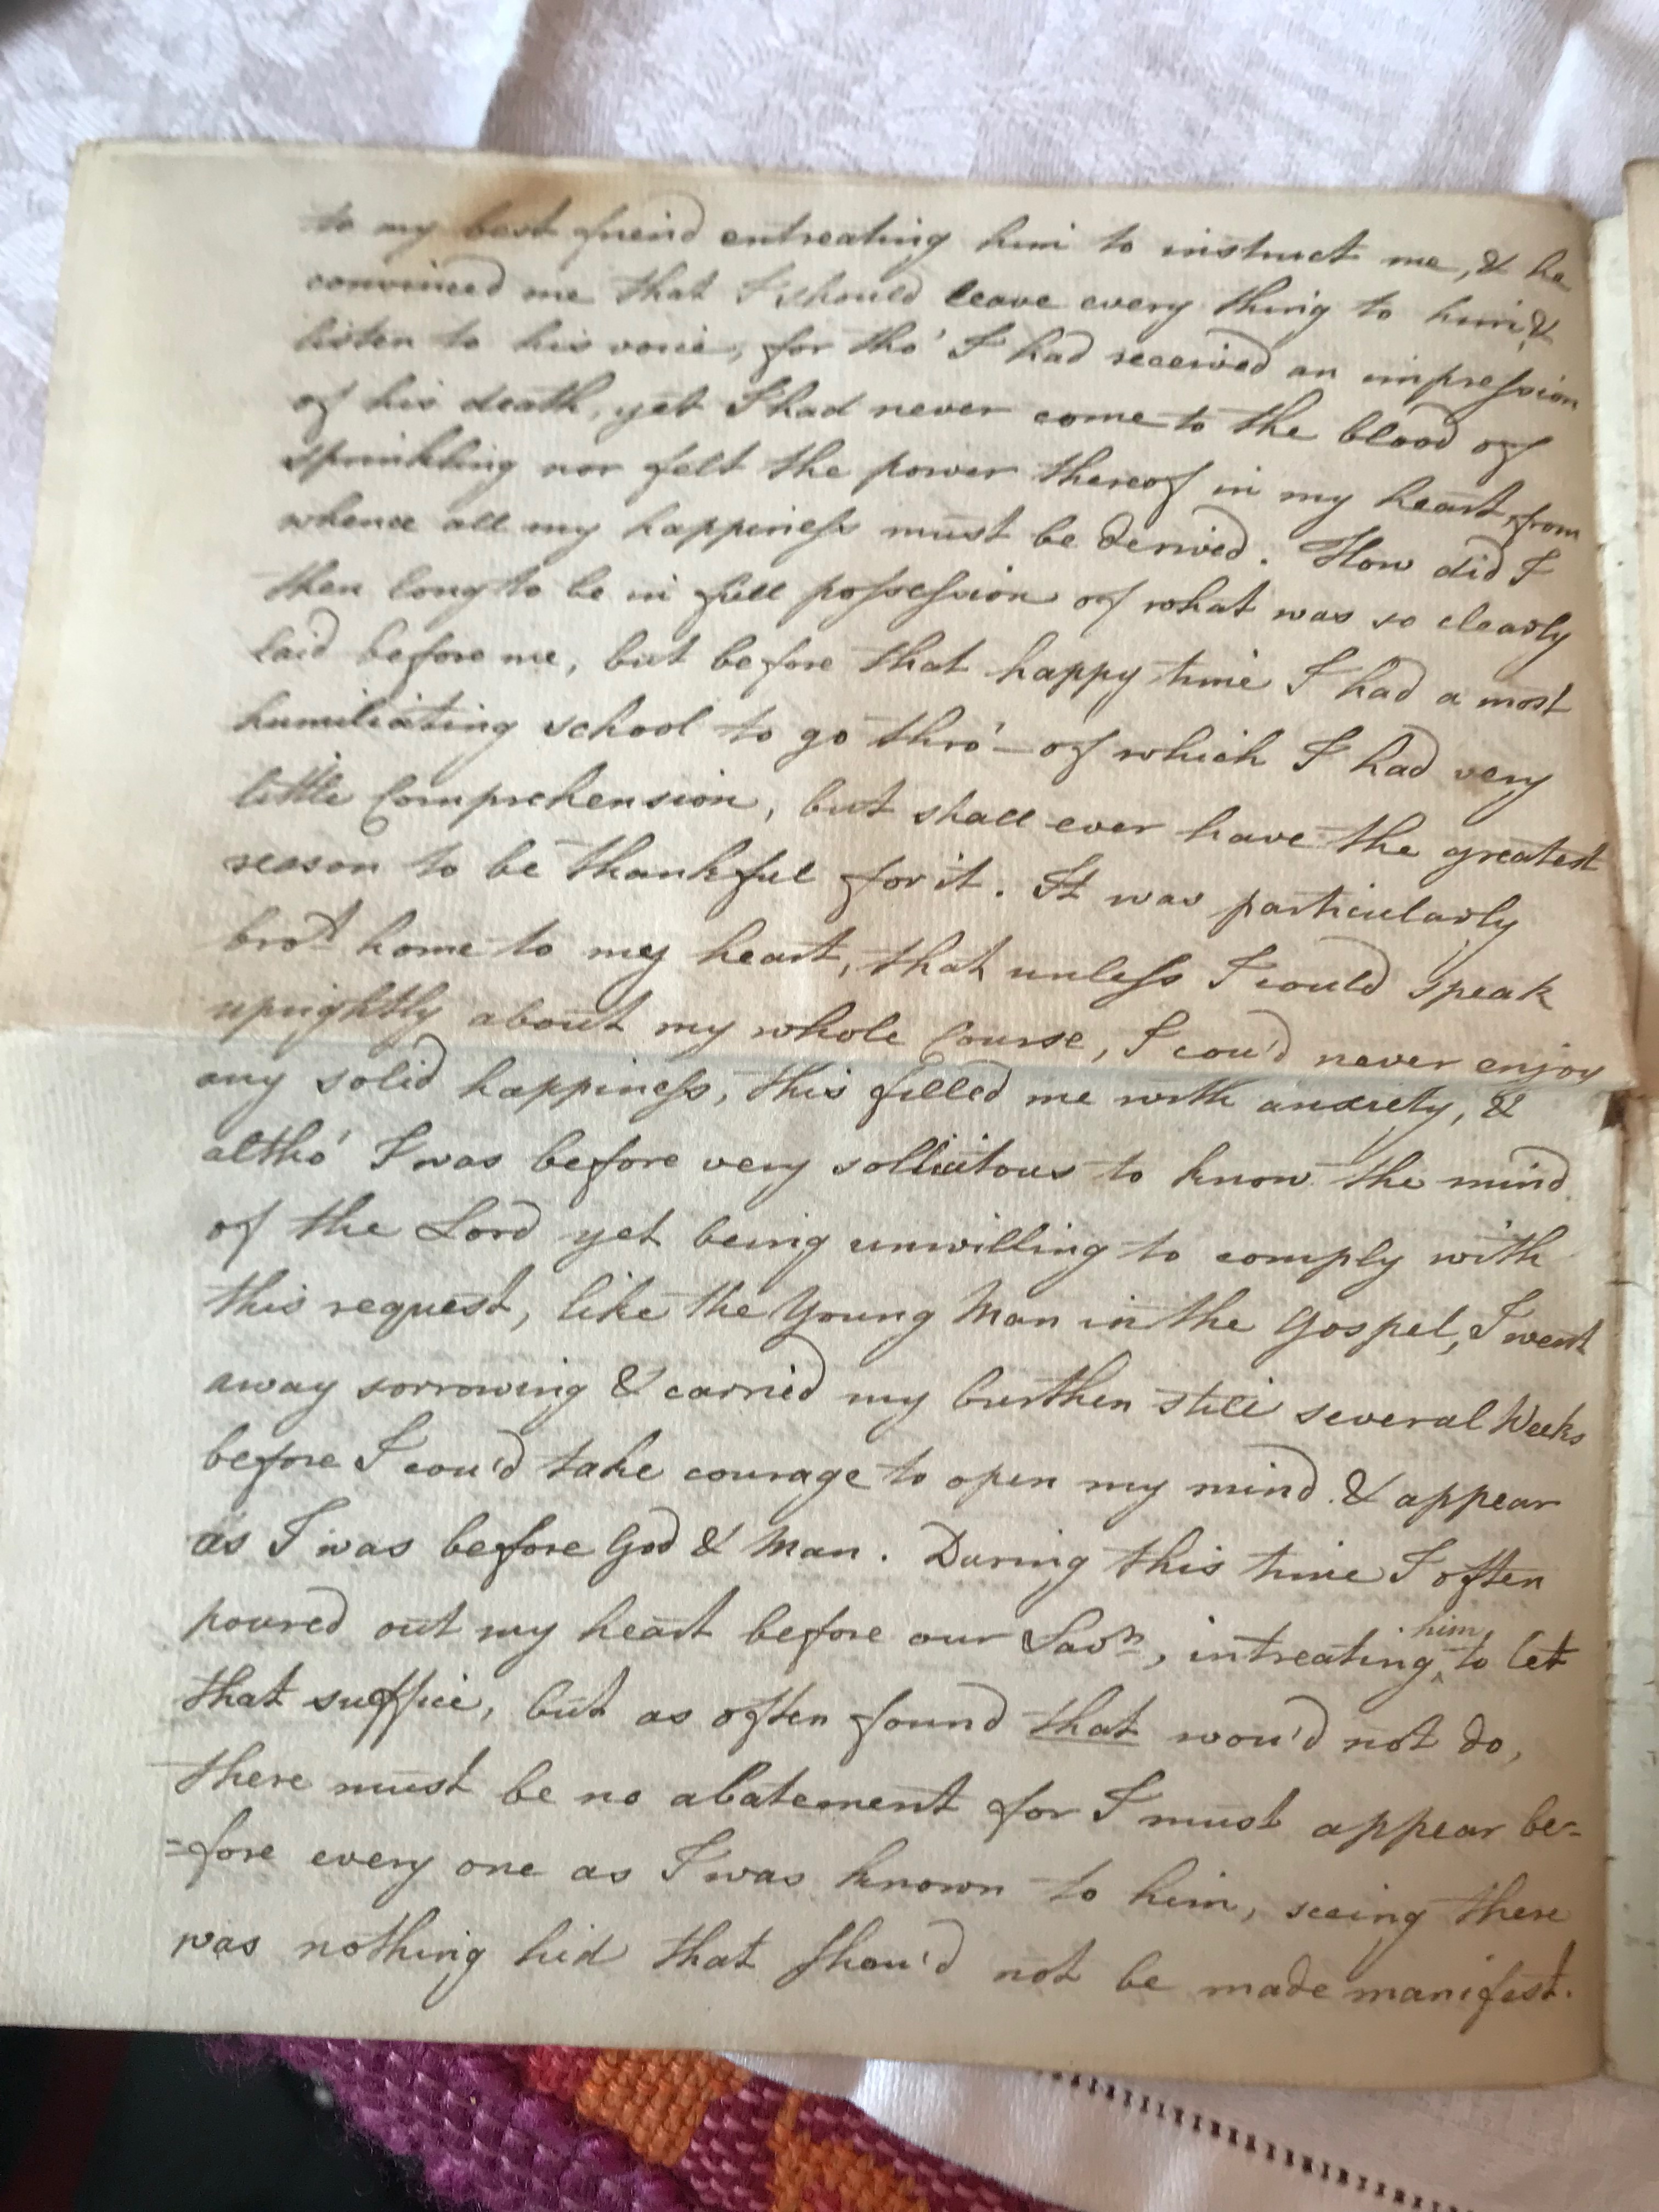 to my best friend entreating him to instruct me, & he
convinced me that I should leave every thing to him &
listen to his voice, for tho' I had received an impression
of his death, yet I had never come to the blood of
sprinkling nor felt the power thereof in my heart, from
whence all my happiness must be derived. How did I
then long to be in full possession of what was so clearly
laid before me, but before that happy time I had a most
humiliating school to go thro' – of which I had very
little Comprehension, but shall ever have the greatest
reason to be thankful for it. It was particularly
brot home to my heart, that unless I could speak
uprightly about my whole Course, I cou'd never enjoy
any solid happiness, this filled me with anxiety, &
altho' I was before very sollicitous to know the mind
of the Lord yet being unwilling to comply with
this request, like the Young Man in the Gospel, I went
away sorrowing & carried my burthen still several Weeks
before I cou'd take courage to open my mind & appear
as I was before God & Man. During this time I often
poured out my heart before our Savr, intreating him to let
that suffice, but as often found that wou'd not do,
there must be no abatement for I must appear be-
=fore every one as I was known to him, seeing there
was nothing hid that shou'd not be made manifest.